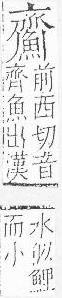 前西切音
齊魚出漢
水似鯉
而小